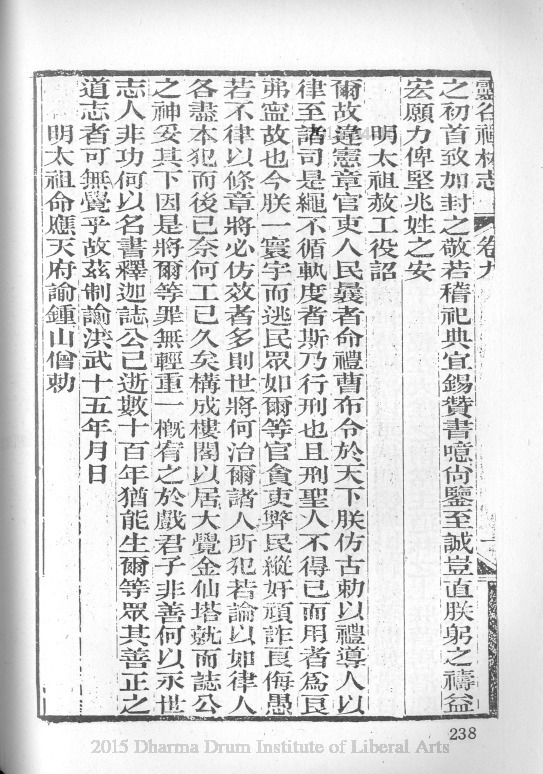 靈谷禪林志　卷九
之初首致加封之敬若稽祀典宜錫贊書噫尙鑒至誠豈直朕躬之禱益
宏願力俾堅兆姓之安
明太祖赦工役詔
爾故違憲章官吏人民曩者命禮曹布令於天下朕仿古勅以禮導人以
律至諸司是繩不循軌度者斯乃行刑也且刑聖人不得已而用者爲良
弗寍故也今朕一寰宇而逃民眾如爾等官貪吏弊民縱奸頑詐良侮愚
若不律以條章將必仿效者多則世將何治爾諸人所犯若論以如律人
各盡本犯而後已奈何工已久矣構成樓閣以居大覺金仙塔就而誌公
之神妥其下因是將爾等罪無輕重一槪宥之於戲君子非善何以永世
志人非功何以名書釋迦誌公已逝數十百年猶能生爾等眾其善正之
道志者可無覺乎故茲制諭洪武十五年月日
明太祖命應天府諭鍾山僧勅
238
2015 Dharma Drum Institute of Liberal Arts